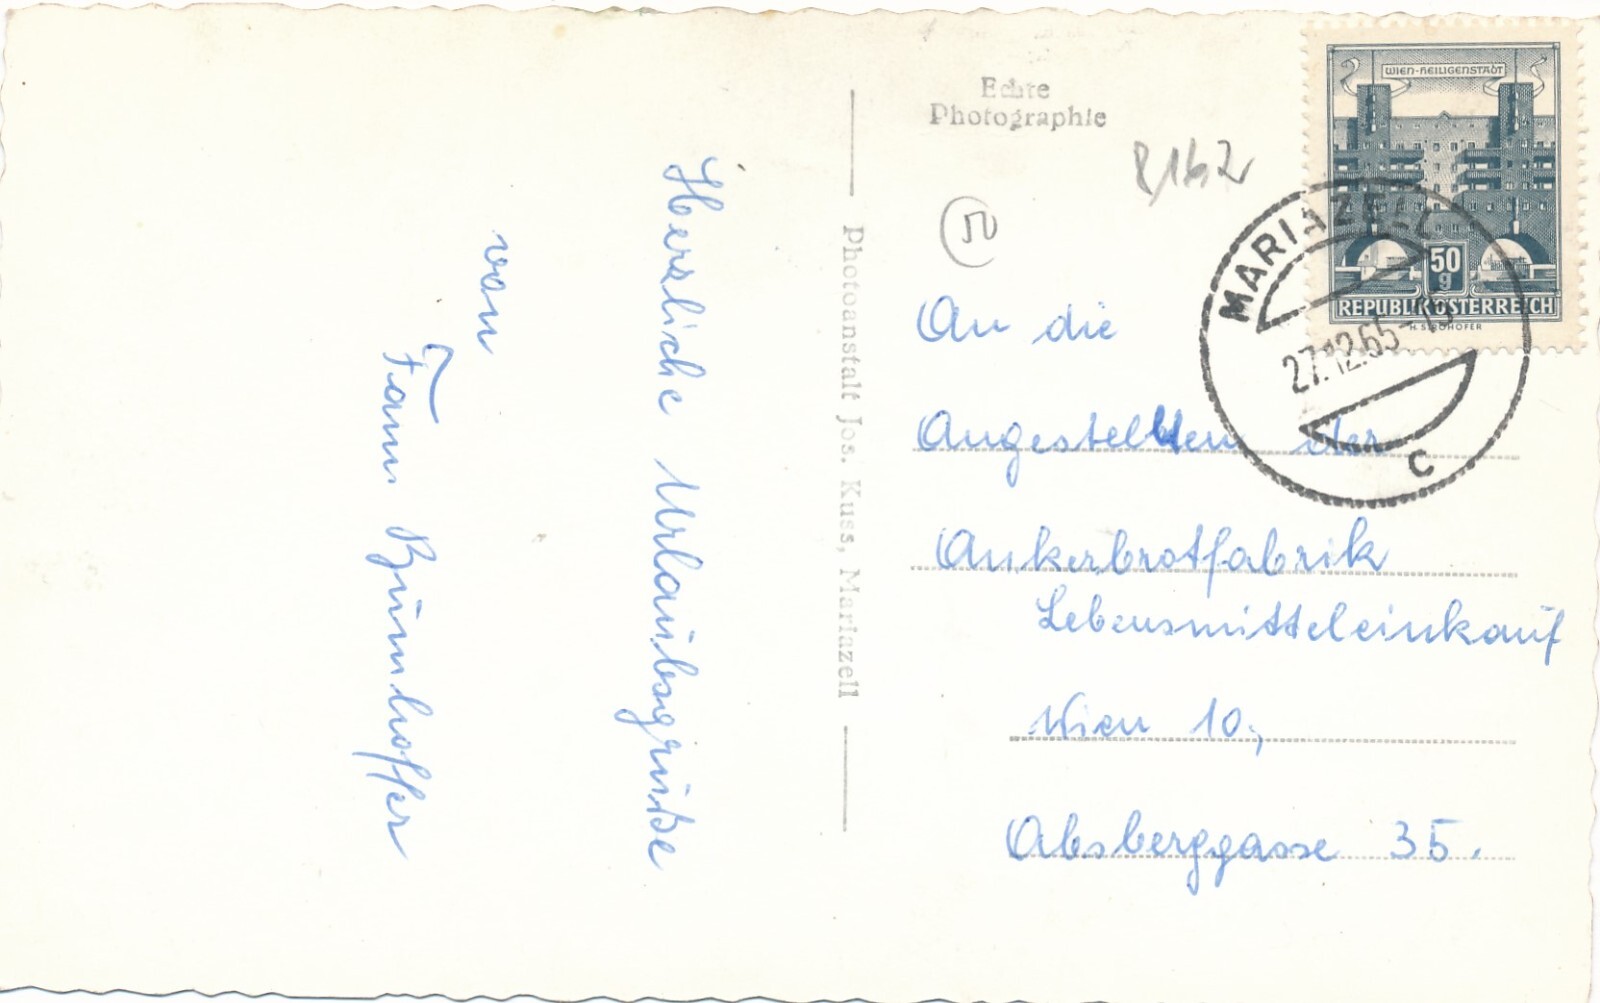 Herzliche Urlaubsgrüße
von
Fam. Brumhoffer
Photoanstalt Jos. Kuss, Mariazell
Echte
Photographie
8162
50
WIEN-HEILIGENSTADT
50
g
REPUBLIK ÖSTERREICH
H. STROHOFER
MARIAZELL
27.12.65-15
C
An die
Angestellten der
Ankerbrotfabrik
Lebensmitteleinkauf
Wien 10.,
Absberggasse 35.